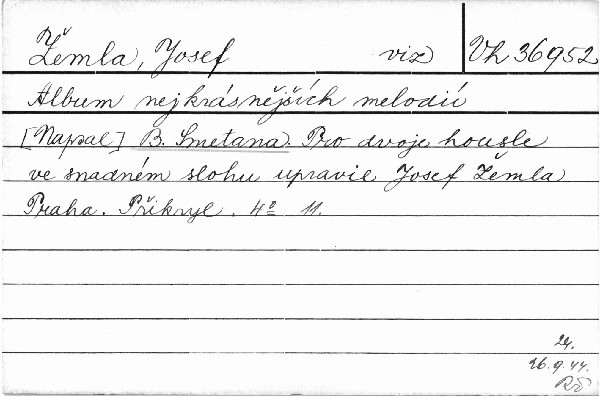 Žemla, Josef viz Vh 36952
Album nejkrásnějších melodií
[Napsal] B. Smetana. Pro dvoje housle
ve snadném slohu upravil Josef Žemla
Praha. Přikryl. 4º 11.
26.9.44.